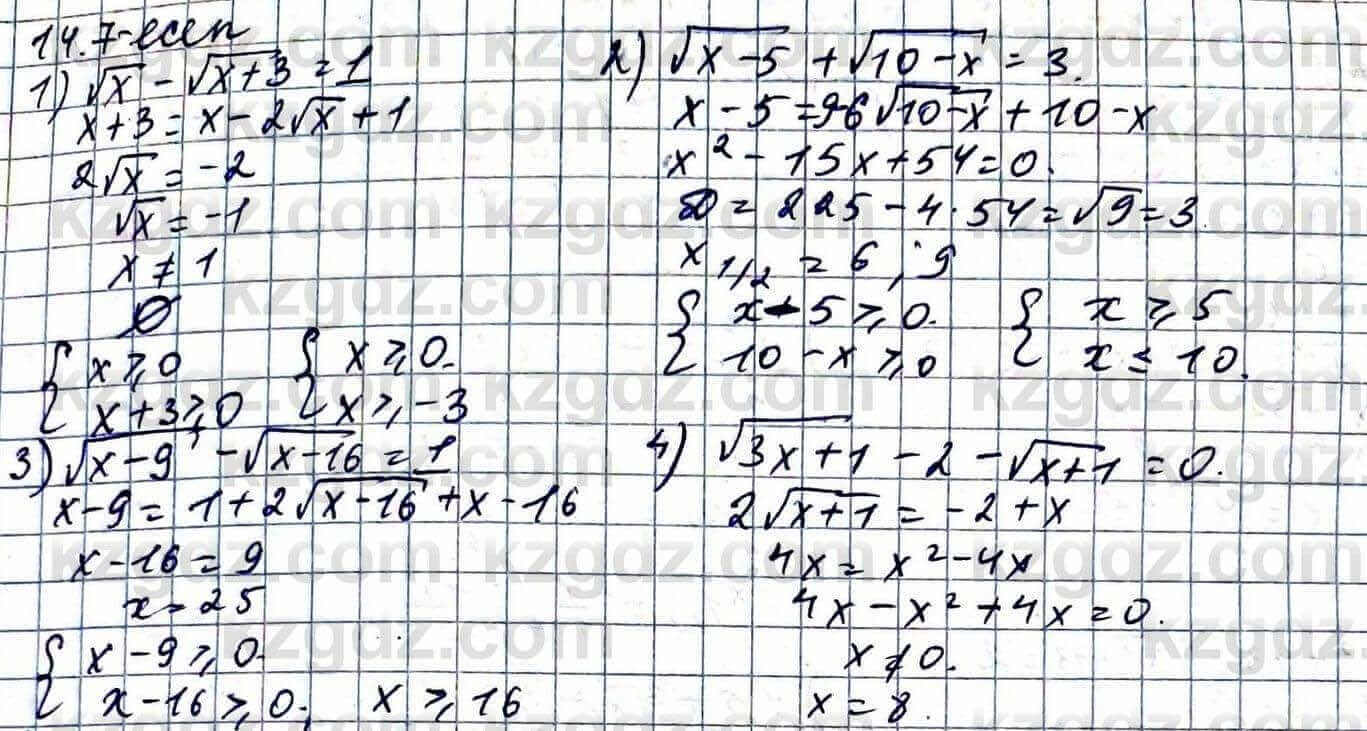 14.7-есеп
1) √x − √(x+3) = 1
x+3 = x − 2√x + 1
2√x = −2
√x = −1
x ≠ 1
∅
{ x ⩾ 0
x+3 ⩾ 0
{ x ⩾ 0.
x ⩾ −3
2) √(x−5) + √(10−x) = 3.
x − 5 = 9−6√(10−x) + 10 − x
x² − 15x + 54 = 0.
D = 225 − 4·54 = √9 = 3.
x 1/2 = 6 ; 9
{ x − 5 ⩾ 0.
10 − x ⩾ 0
{ x ⩾ 5
x ≤ 10.
3) √(x−9) − √(x−16) = 1
x−9 = 1+2√(x−16) + x − 16
x−16 = 9
x = 25
{ x − 9 ⩾ 0.
x −16 ⩾ 0, x ⩾ 16
4) √(3x+1) − 2 − √(x+1) = 0.
2√(x+1) = −2 + x
4x = x² − 4x
4x − x² + 4x = 0.
x ≠ 0.
x = 8.
kzgdz.com